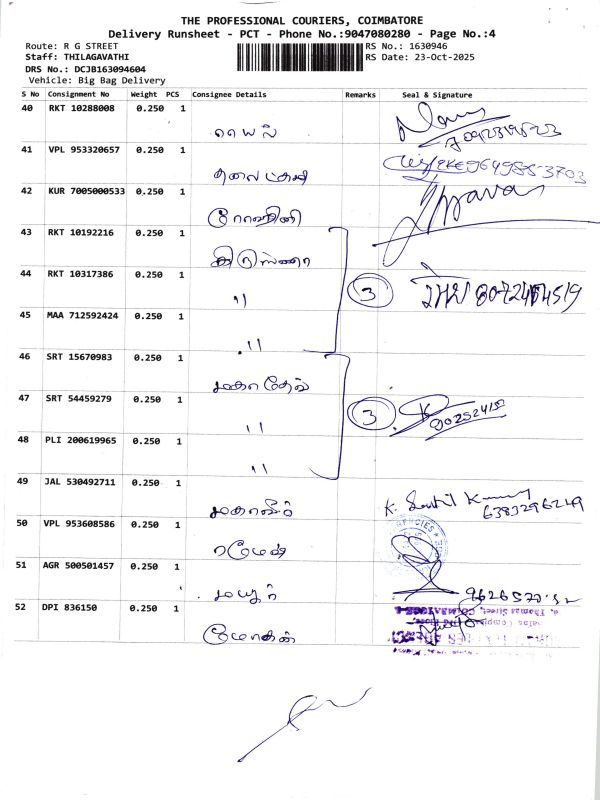 THE PROFESSIONAL COURIERS, COIMBATORE
Delivery Runsheet - PCT - Phone No.:9047080280 - Page No.:4
Route: R G STREET
RS No.: 1630946
Staff: THILAGAVATHI
RS Date: 23-Oct-2025
DRS No.: DCJB163094604
Vehicle: Big Bag Delivery
S No Consignment No Weight PCS Consignee Details Remarks Seal & Signature
40 RKT 10288008 0.250 1
41 VPL 953320657 0.250 1
42 KUR 7005000533 0.250 1
43 RKT 10192216 0.250 1
44 RKT 10317386 0.250 1
" 3
45 MAA 712592424 0.250 1
"
46 SRT 15670983 0.250 1
மகாதேவ்
47 SRT 54459279 0.250 1
" 3
48 PLI 200619965 0.250 1
"
49 JAL 530492711 0.250 1
மகாவீர் 6383296249
50 VPL 953608586 0.250 1
ரமேஷ்
51 AGR 500501457 0.250 1
52 DPI 836150 0.250 1